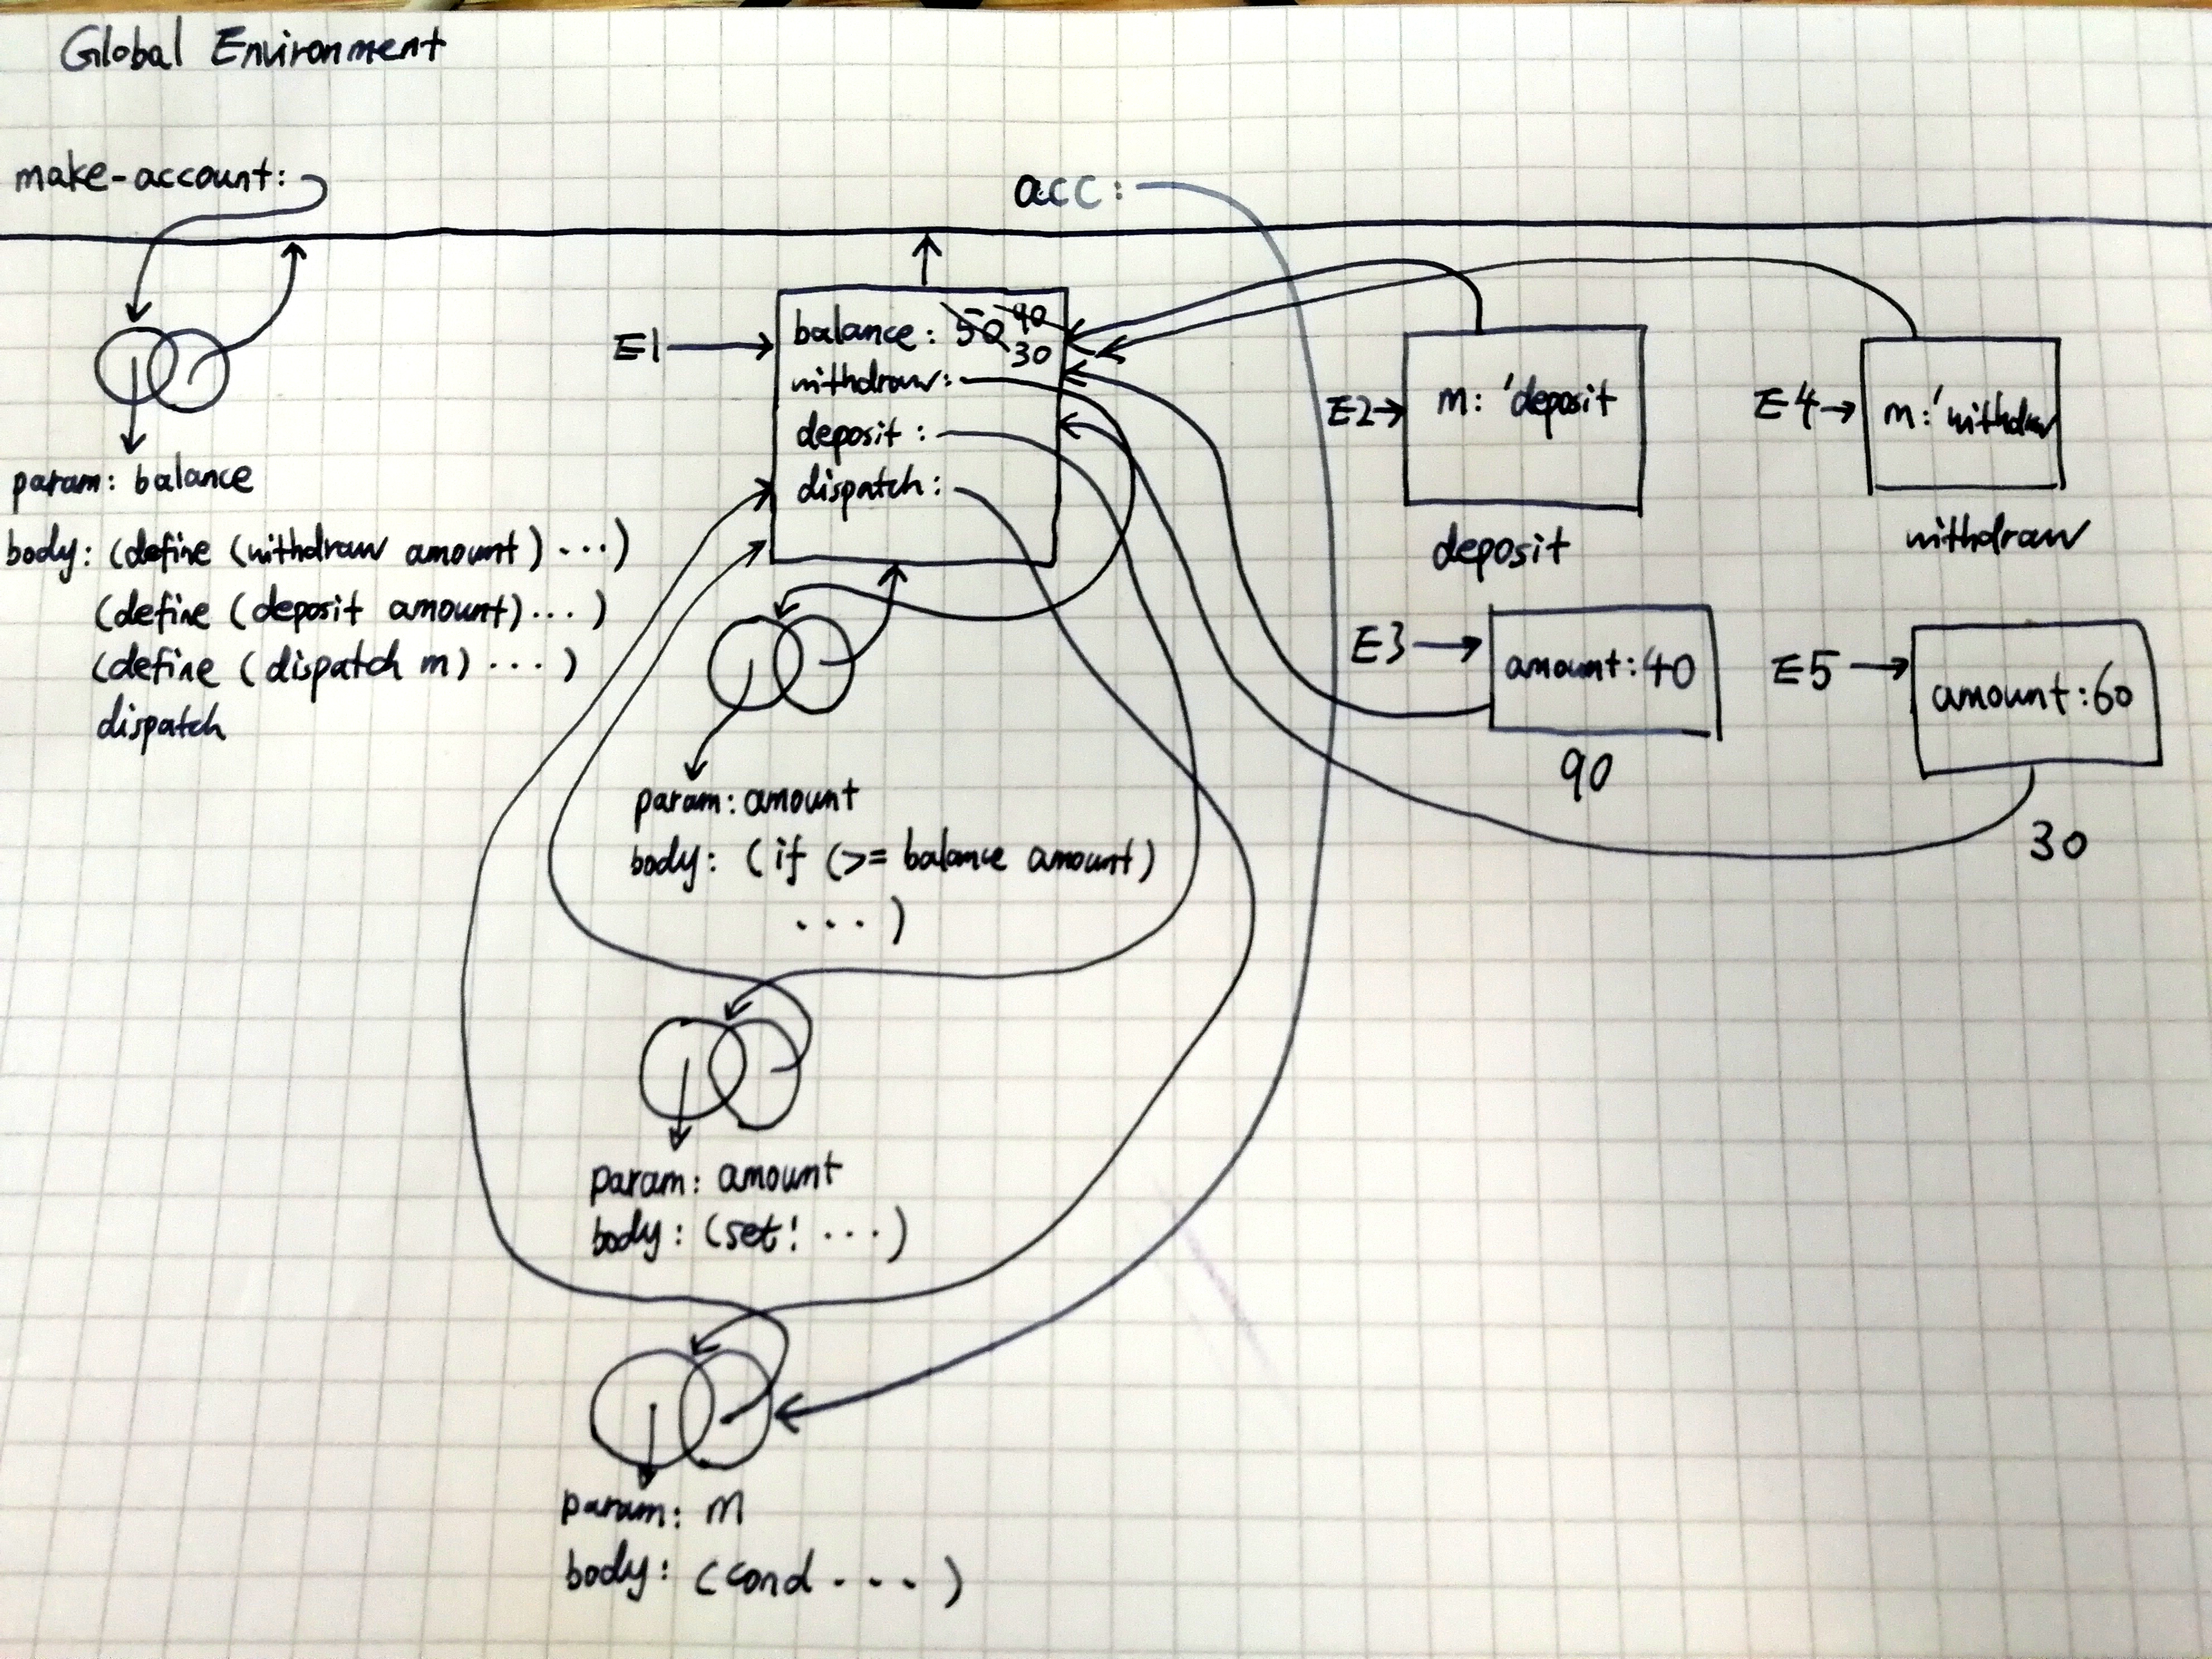 Global Environment
make-account:
acc:
param: balance
body: (define (withdraw amount) ...)
(define (deposit amount) ...)
(define (dispatch m) ...)
dispatch
E1
balance: 50 90
30
withdraw:
deposit:
dispatch:
E2
m: 'deposit
deposit
E4
m: 'withdraw
withdraw
E3
amount: 40
90
E5
amount: 60
30
param: amount
body: (if (>= balance amount)
...)
param: amount
body: (set! ...)
param: m
body: (cond ...)